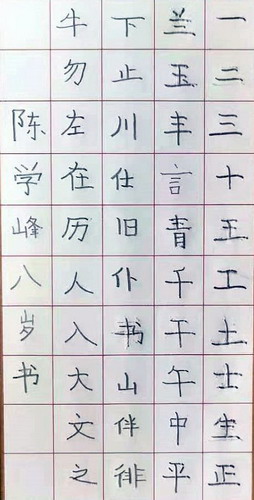 一二三十王工土士生正
兰玉丰言青千干午中平
下止川仕旧仆书山伴徘
牛勿左在历人入大文之
陈学峰八岁书